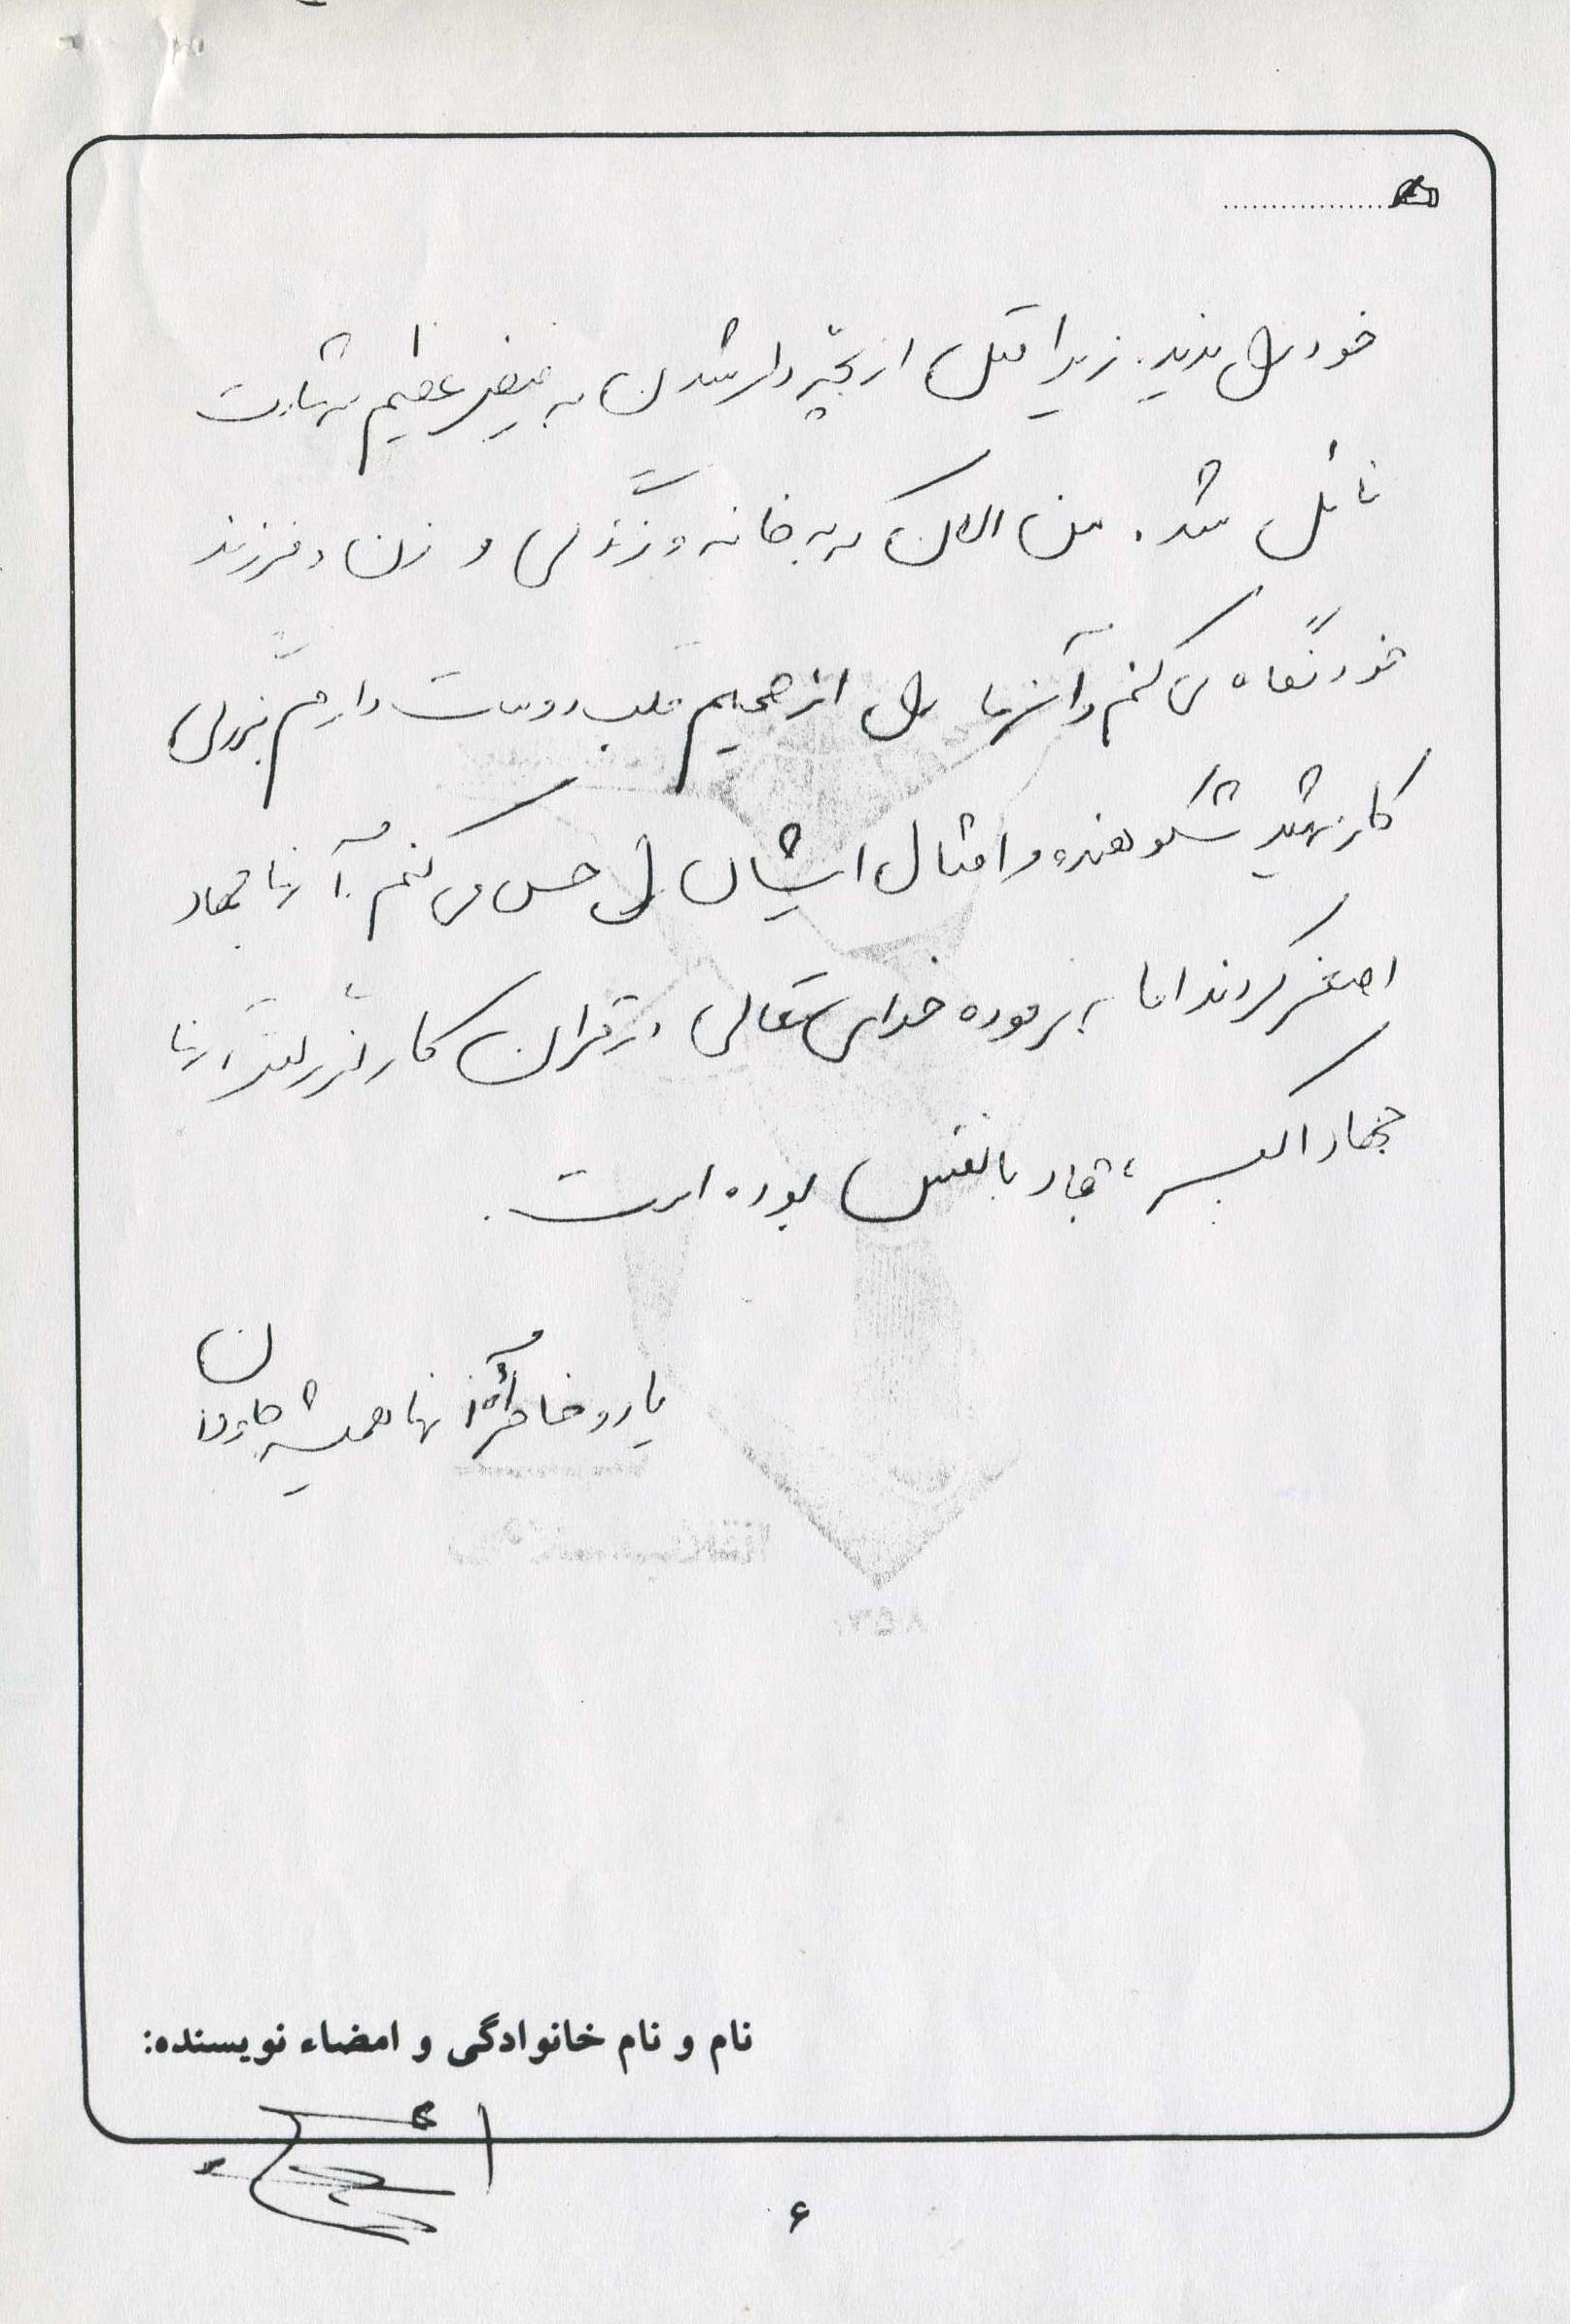 خود را ندید. زیرا قبل از بچه دار شدن به فیض عظیم شهادت
نائل شد. من الان که به خانه و زندگی و زن و فرزند
خود نگاه می کنم و آنها را از صمیم قلب دوست دارم بزرگی
کار شهید شکوهنده و امثال ایشان را حس می کنم. آنها جهاد
اصغر کردند اما به فرموده خدای تعالی در قرآن کار بزرگتر آنها
جهاد اکبر، جهاد با نفس بوده است.
یاد و خاطره آنها همیشه جاودان
نام و نام خانوادگی و امضاء نویسنده:
۶